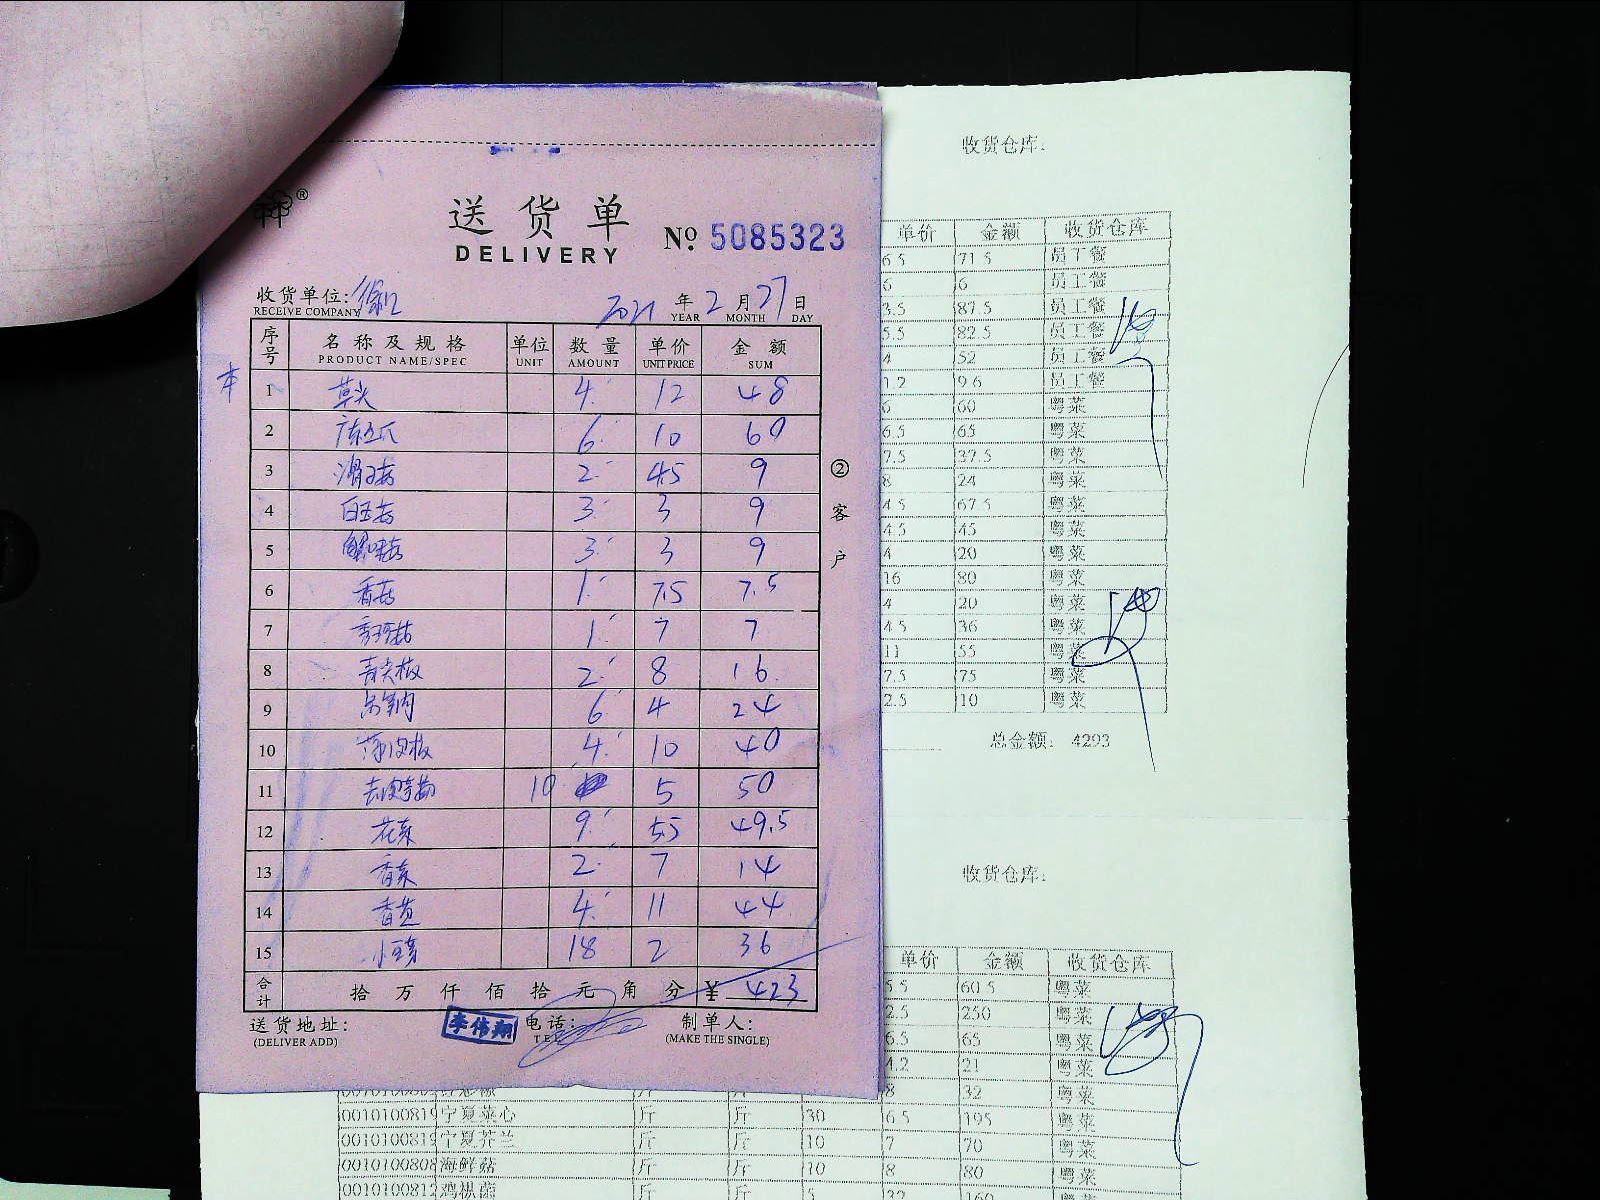 送货单
DELIVERY
№ 5085323
收货单位:
RECEIVE COMPANY
2021 年 2 月 27 日
YEAR MONTH DAY
序号 名称及规格 单位 数量 单价 金额
PRODUCT NAME/SPEC UNIT AMOUNT UNIT PRICE SUM
本
1 草头 4 12 48
2 6 10 60
3 滑子菇 2 4.5 9
4 白玉菇 3 3 9
5 蟹味菇 3 3 9
6 香菇 1 7.5 7.5
7 秀珍菇 1 7 7
8 青尖椒 2 8 16
9 6 4 24
10 薄皮椒 4 10 40
11 10 5 50
12 花菜 9 5.5 49.5
13 香菜 2 7 14
14 香芹 4 11 44
15 18 2 36
合计 拾万仟佰拾元角分 ¥ 423
送货地址: 李伟翔 电话: 制单人:
(DELIVER ADD) TEL (MAKE THE SINGLE)
② 客户
收货仓库:
单价 金额 收货仓库
6.5 71.5 员工餐
6 6 员工餐
3.5 87.5 员工餐
5.5 82.5 员工餐
4 52 员工餐
1.2 9.6 员工餐
6 60 粤菜
6.5 65 粤菜
7.5 37.5 粤菜
8 24 粤菜
4.5 67.5 粤菜
4.5 45 粤菜
4 20 粤菜
16 80 粤菜
4 20 粤菜
4.5 36 粤菜
11 55 粤菜
7.5 75 粤菜
2.5 10 粤菜
总金额: 4293
收货仓库:
单价 金额 收货仓库
5.5 60.5 粤菜
2.5 250 粤菜
6.5 65 粤菜
4.2 21 粤菜
8 32 粤菜
0010100819 宁夏菜心 斤 斤 30 6.5 195 粤菜
0010100819 宁夏芥兰 斤 斤 10 7 70 粤菜
0010100808 海鲜菇 斤 斤 10 8 80 粤菜
0010100812 鸡枞菌 斤 斤 5 32 160 粤菜